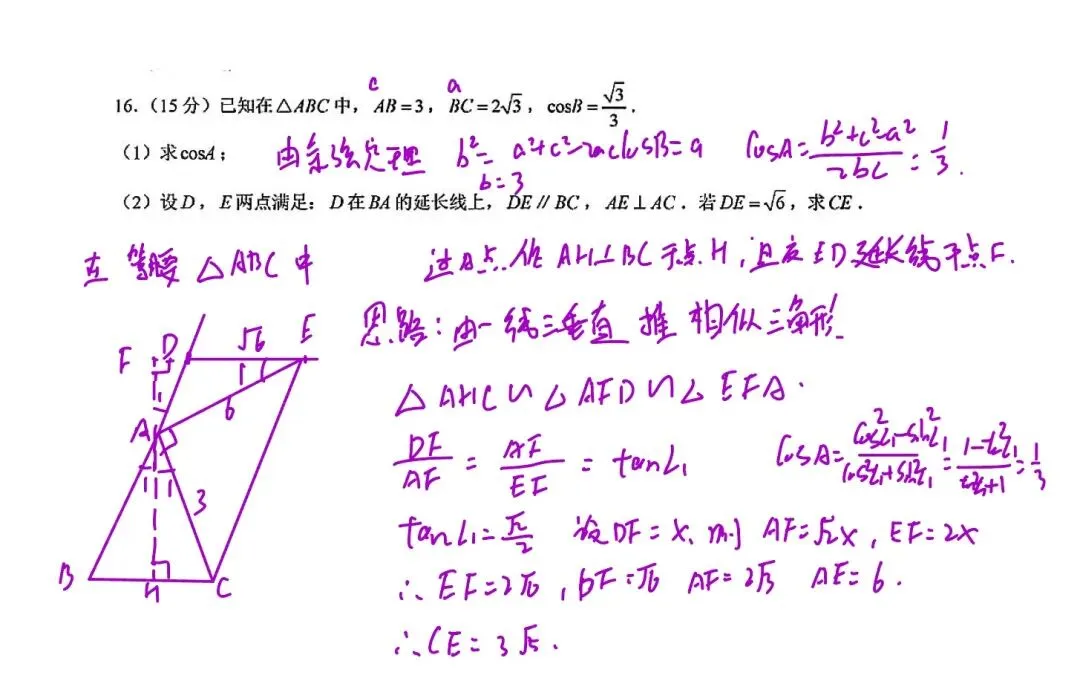 c a
16.（15分）已知在△ABC中，AB=3，BC=2√3，cosB=√3/3．
（1）求cosA； 由余弦定理 b²=a²+c²-2accosB=9 cosA=(b²+c²-a²)/2bc=1/3.
b=3
（2）设D，E两点满足：D在BA的延长线上，DE∥BC，AE⊥AC．若DE=√6，求CE．
在等腰△ABC中 过A点作AH⊥BC于点H,且交ED延长线于点F.
思路:由一线三垂直推相似三角形
F D √6 E
1
1 6
△AHC∽△AFD∽△EFA.
A
DF/AF=AF/EF=tan∠1 cosA=(cos²∠1-sin²∠1)/(cos²∠1+sin²∠1)=(1-t²∠1)/(t²∠1+1)=1/3
1 1 3
tan∠1=√2/2 设DF=x,则AF=√2x,EF=2x
B H C
∴EF=2√6,DF=√6 AF=2√3 AE=6.
∴CE=3√5.